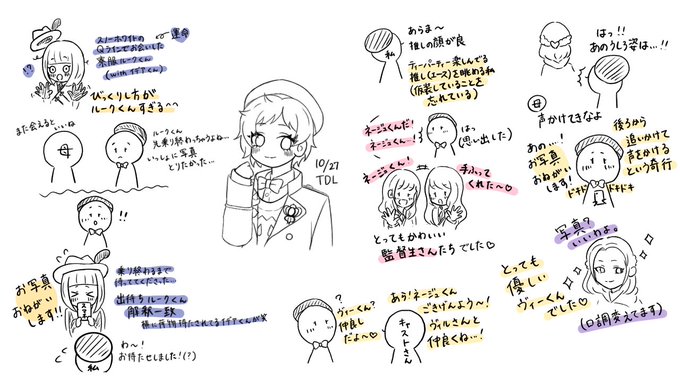 スノーホワイトの
Qラインでお会いした
素顔ルークくん
(withイデアくん)
運命
!?
びっくりし方が
ルークくんすぎる^^
また会えると
いいね
母
ルークくん
先乗り終わっちゃうよね…
いっしょに写真
とりたかった…
!!
お写真
おねがい
します!!
乗り終わるまで
待っててくださった
出待ちルークくん
解釈一致
横に荷物持たされてるイデアくんが笑
私
わ〜!
お待たせしました!(?)
10/27
TDL
あらま〜
推しの顔が良
私
ティーパーティー楽しんでる
推し(エース)を眺める私
(仮装していることを
忘れている)
ネージュくんだ!
ネージュくーん!
はっ
(思い出した)
ネージュくん!
手ふって
くれた〜♡
とってもかわいい
監督生さんたちでした♡
?
ヴィーくん?
仲良し
だよ〜♡
あら!ネージュくん
ごきげんよう〜!
ヴィルさんと
仲良くね…!
キャストさん
はっ!!
あのうしろ姿は…!!
母
声かけてきなよ
あの…!
お写真
おねがい
します!
後ろから
追いかけて
声をかける
という奇行
ドキドキ
ドキドキ
写真?
いいわよ。
とっても
優しい
ヴィーくん
でした♡
(口調変えてます)